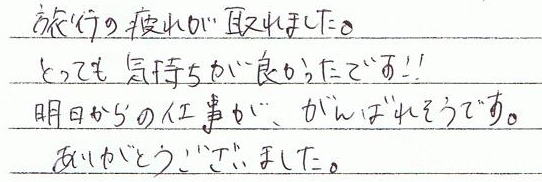 旅行の疲れが取れました。
とっても気持ちが良かったです!!
明日からの仕事が、がんばれそうです。
ありがとうございました。